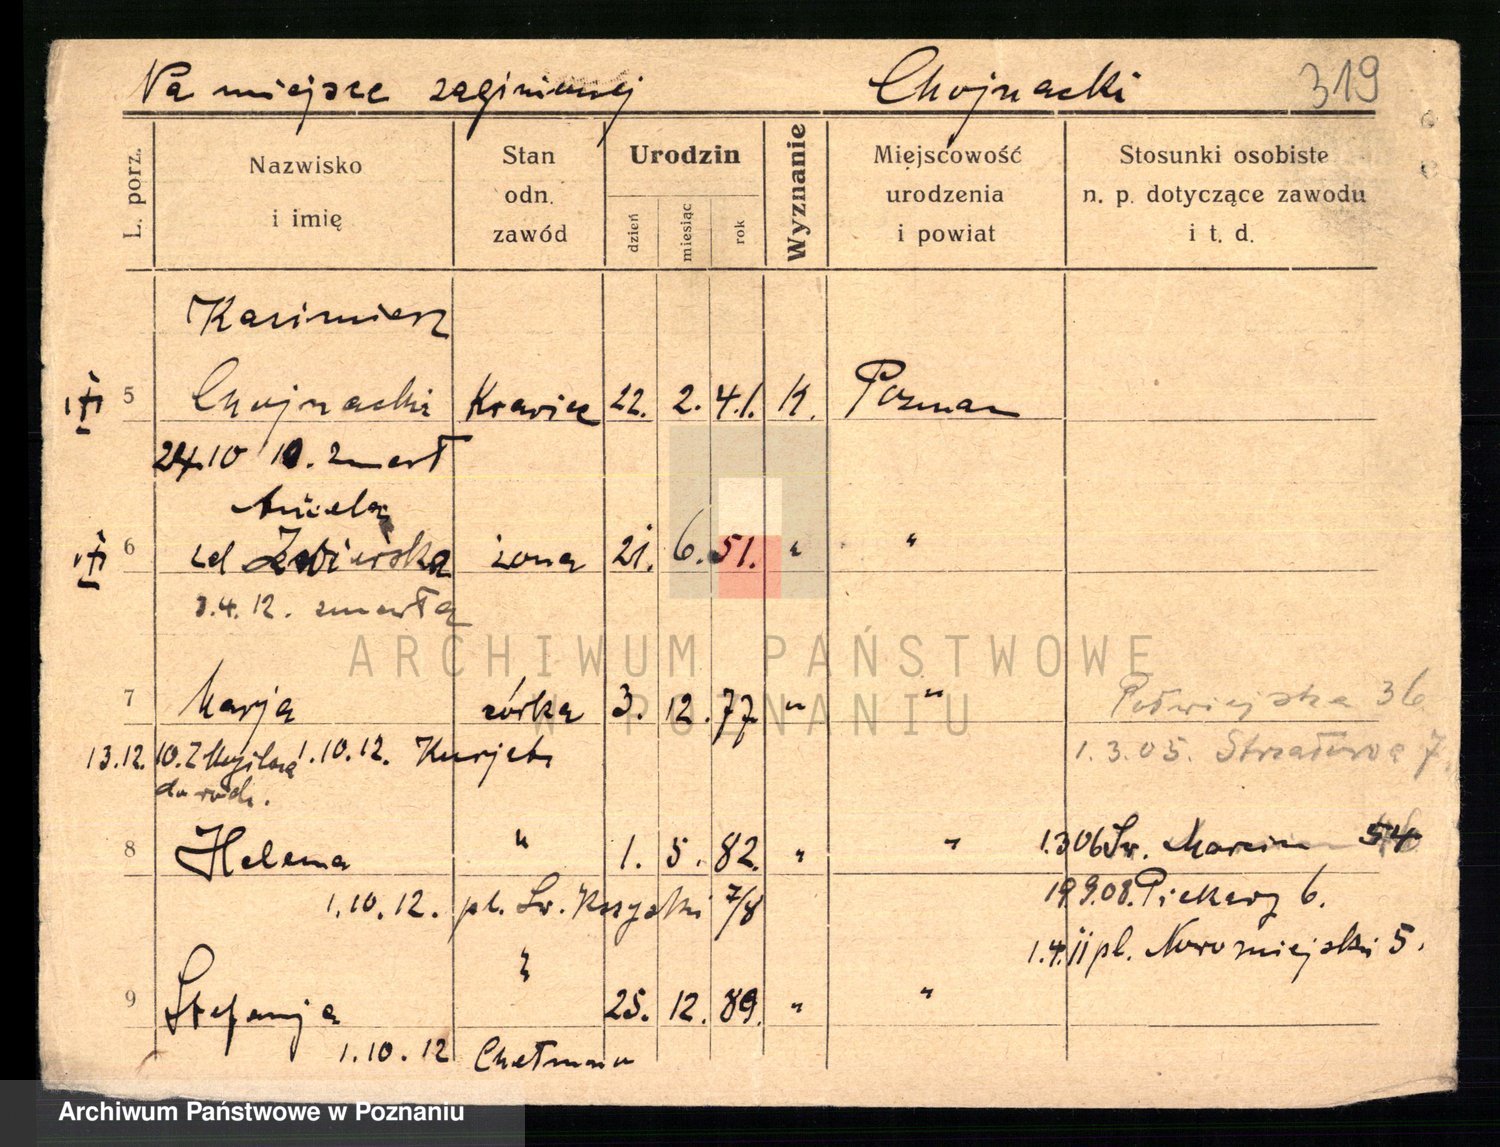 Na miejsce zaginionej Chojnacki 319
L. porz.
Nazwisko i imię
Stan odn. zawód
Urodzin
dzień miesiąc rok
Wyznanie
Miejscowość urodzenia i powiat
Stosunki osobiste n. p. dotyczące zawodu i t. d.
Kazimierz
5 Chojnacki Krawiec 22. 2. 41. K. Poznań
24.10 10. zmarł
Aniela
6 żona 21. 6. 51. " "
3.4.12. zmarła
7 Marja córka 3. 12. 77 " " Półwiejska 36
13.12.10. 1.10.12. 1.3.05. Strzałowa 7.
do rodz.
8 Helena " 1. 5. 82. " " 1.306 Św. Marcin 54
1.10.12. pl. Św. Krzyski 7/8 19 9.08. Piekary 6.
1.4.11 pl. Nowomiejski 5.
9 Stefanja " 25. 12. 89. " "
1.10.12 Chełmno
ARCHIWUM PAŃSTWOWE
W POZNANIU
Archiwum Państwowe w Poznaniu